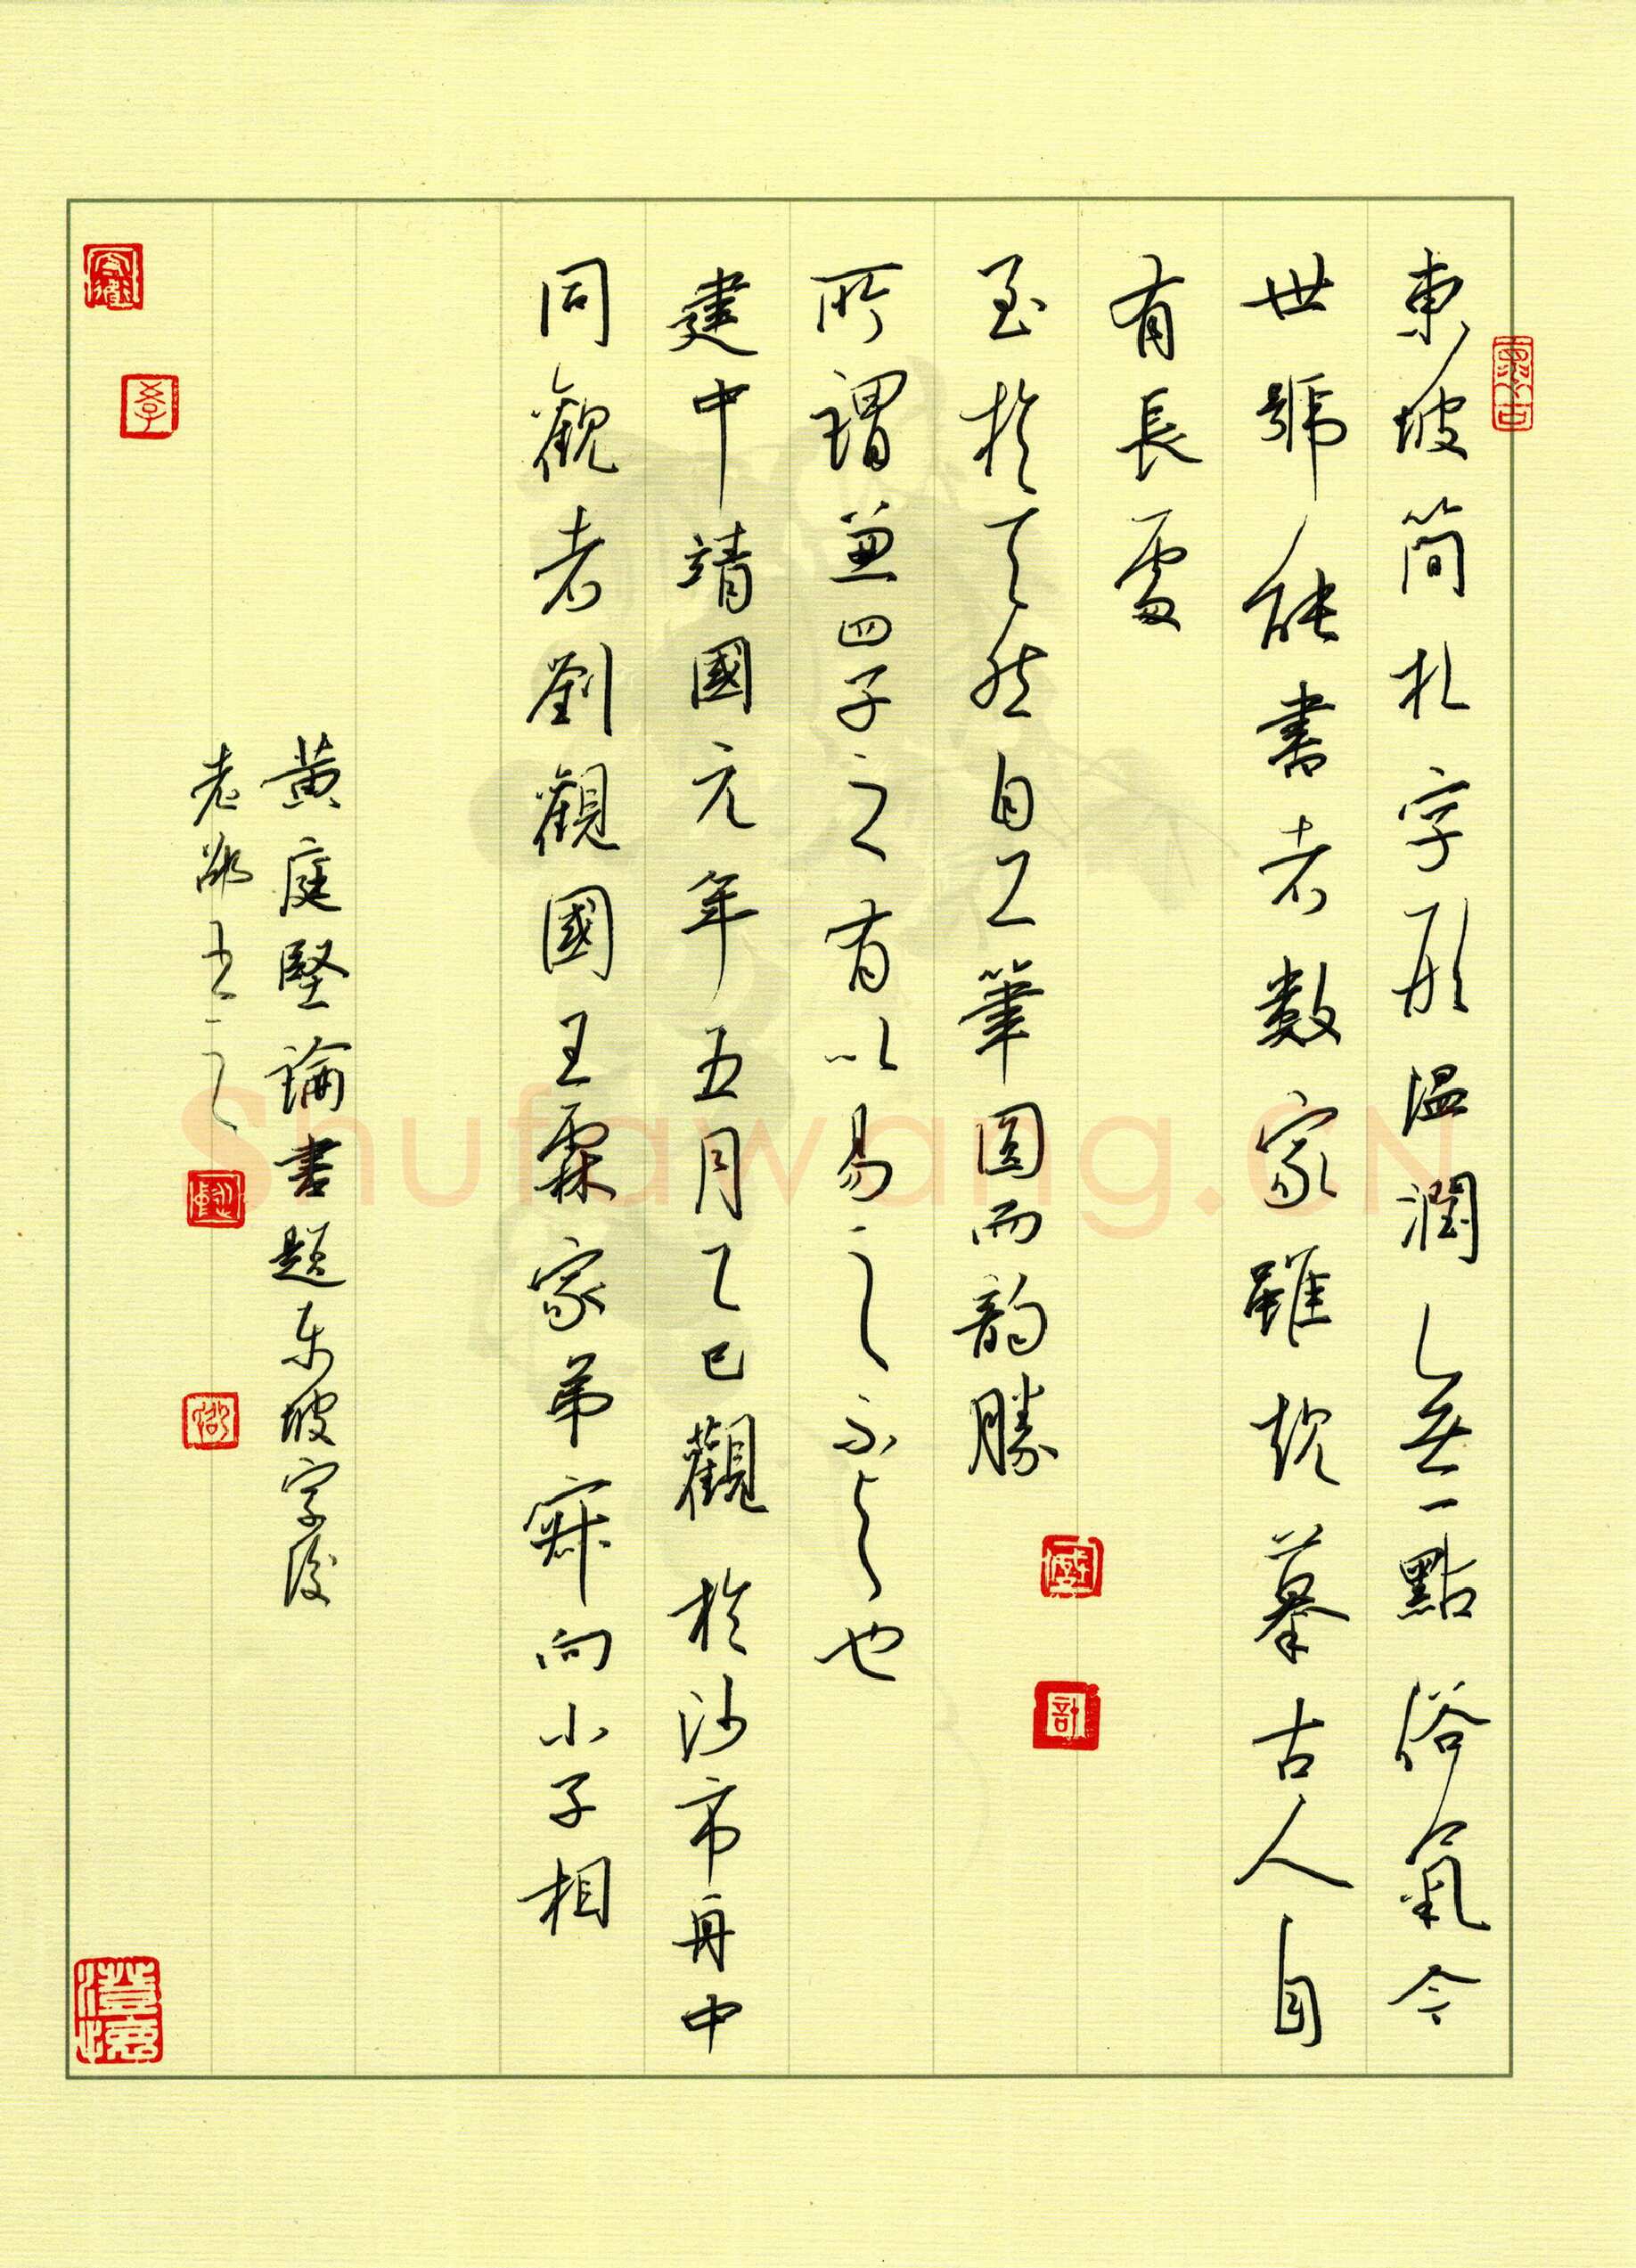 東坡簡札字形温潤無一點俗氣今
世號能書者数家雖規摹古人自
有長處
至於天然自工筆圓而韵勝
所謂兼四子之有以易之不与也
建中靖國元年五月乙巳觀於沙市舟中
同觀者劉觀國王霖家弟寂向小子相
黄庭堅論書題东坡字後
老书之
澄懷
Shufawang.CN